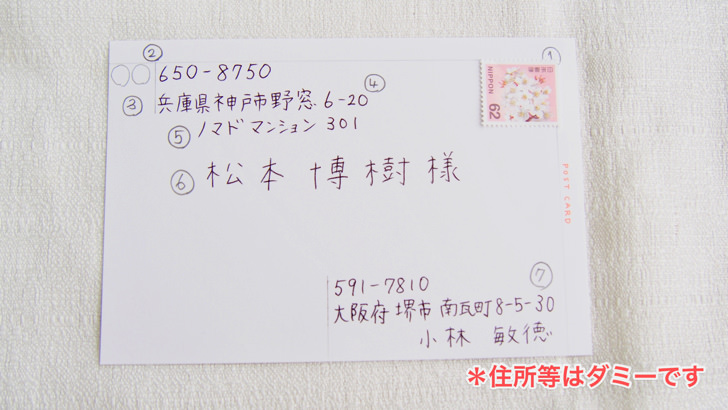 ②
①
○○ 650-8750
④
③ 兵庫県神戸市野窓 6-20
⑤ ノマドマンション 301
⑥ 松本 博樹 様
日本郵便
NIPPON
62
POST CARD
⑦
591-7810
大阪府堺市南瓦町8-5-30
小林 敏徳
＊住所等はダミーです